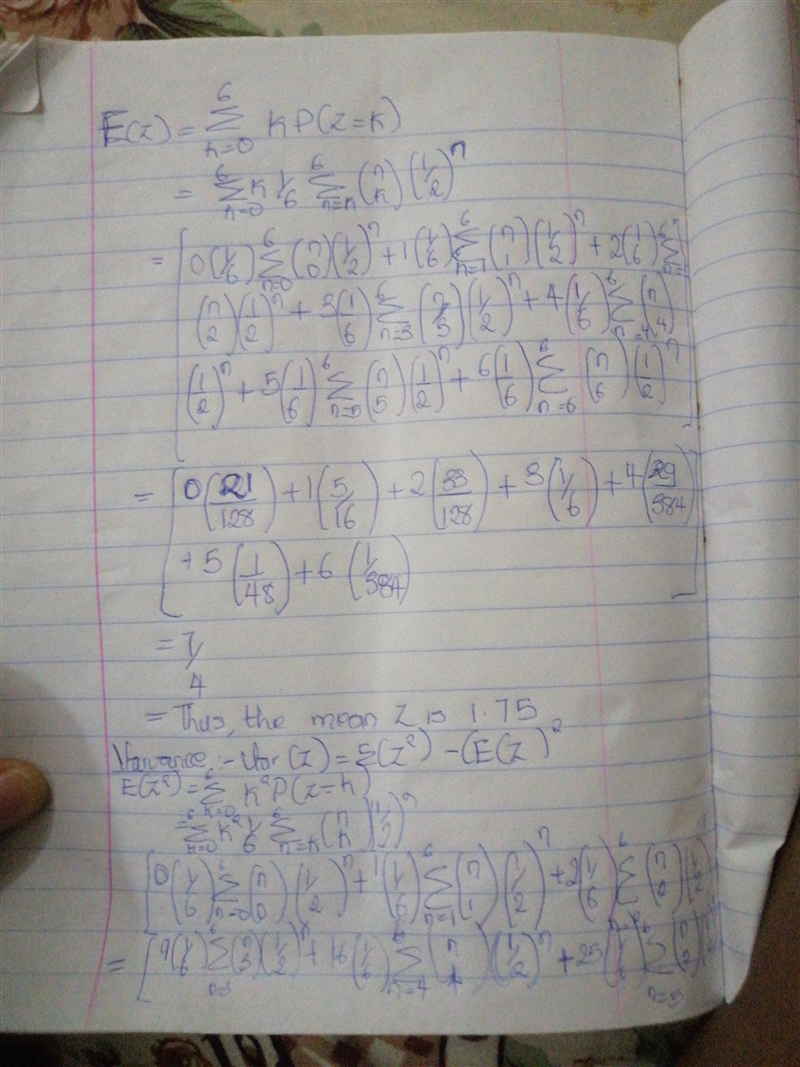 E(Z) = ∑_{k=0}^{6} K P(Z=K)
= ∑_{k=0}^{6} K 1/6 ∑_{n=k}^{6} (n K) (1/2)^n
= [0(1/6) ∑_{n=0}^{6} (n 0) (1/2)^n + 1(1/6) ∑_{n=1}^{6} (n 1) (1/2)^n + 2(1/6) ∑
(n 2) (1/2)^n + 3(1/6) ∑_{n=3}^{6} (n 3) (1/2)^n + 4(1/6) ∑_{n=4}^{6} (n 4)
(1/2)^n + 5(1/6) ∑_{n=5}^{6} (n 5) (1/2)^n + 6(1/6) ∑_{n=6}^{6} (n 6) (1/2)^n]
= [0(21/128) + 1(5/16) + 2(33/128) + 3(1/6) + 4(29/384)
+ 5(1/48) + 6(1/384)]
= 7/4
= Thus, the mean Z is 1.75
Variance :- Var(Z) = E(Z²) - (E(Z)²
E(Z²) = ∑_{k=0}^{6} K² P(Z=K)
= ∑_{k=0}^{6} K² 1/6 ∑_{n=k}^{6} (n K) (1/2)^n
[0(1/6) ∑_{n=0}^{6} (n 0) (1/2)^n + 1(1/6) ∑_{n=1}^{6} (n 1) (1/2)^n + 2(1/6) ∑^{6} (n 2) (1/2)
= [9(1/6) ∑^{6} (n 3) (1/2)^n + 16(1/6) ∑_{n=4}^{6} (n 4) (1/2)^n + 25(1/6) ∑_{n=5}^{6}